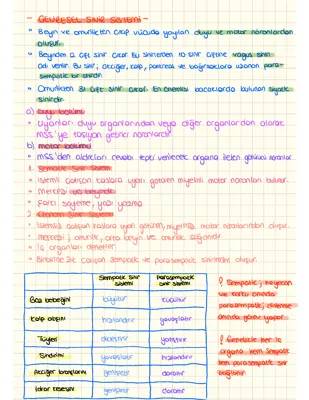 - ÇEVRESEL SİNİR SİSTEMİ -
• Beyin ve omurilikten çıkıp vücuda yayılan duyu ve motor nöronlardan
oluşur.
• Beyinden 12 çift sinir çıkar. Bu sinirlerden 10. sinir çiftine vagus sinir
adı verilir. Bu sinir, akciğer, kalp, pankreas ve bağırsaklara uzanan para-
simpatik bir sinirdir.
• Omurilikten 31 çift sinir çıkar. En önemlisi bacaklarda bulunan siyatik
siniridir.
a) duyu bölümü
• Uyarıları duyu organlarından veya diğer organlardan alarak
MSS'ye taşıyan getirici nöronlardır.
b) motor bölümü
• MSS'den aldıkları cevabı tepki verilecek organa ileten götürücü nöronlar.
1. Somatik Sinir Sistemi
• İstemli çalışan kaslara uyarı götüren miyelinli motor nöronları bulunur.
• Merkezi
• yazı yazma
2. Otonom Sinir Sistemi
• İstemsiz çalışan kaslara uyarı götüren, miyelinsiz motor nöronlarından oluşur.
• merkezi; omurilik, orta beyin ve omurilik soğanıdır
• İç organları denetler.
• Birbirine zıt çalışan sempatik ve parasempatik sinirlerden oluşur.
Sempatik Sinir Sistemi
Parasempatik Sinir Sistemi
Göz bebeğini büyütür küçültür
Kalp atışını hızlandırır yavaşlatır
Tüyleri dikleştirir yatıştırır
Sindirimi yavaşlatır hızlandırır
Akciğer bronşlarını genişletir daraltır
İdrar kesesini genişletir daraltır
! Sempatik; heyecan
ve korku anında
parasempatik; dinlenme
anında görev yapar.
! Genellikle her iç
organa hem sempatik
hem parasempatik sinir
bağlanır